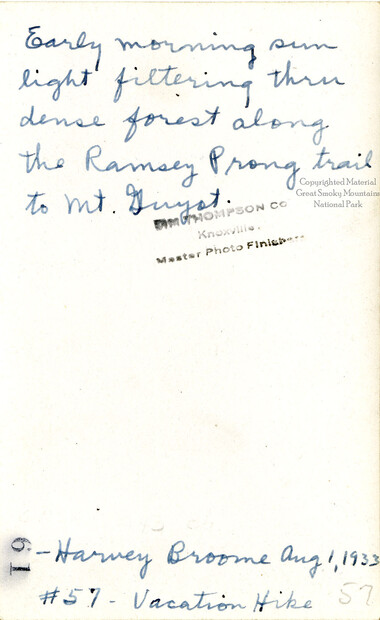 Early morning sun
light filtering thru
dense forest along
the Ramsey Prong trail
to Mt. Guyot.
Copyrighted Material
Great Smoky Mountains
National Park
JIM THOMPSON CO
Knoxville,
Master Photo Finishers
19
- Harvey Broome Aug 1, 1933
#57 - Vacation Hike 57